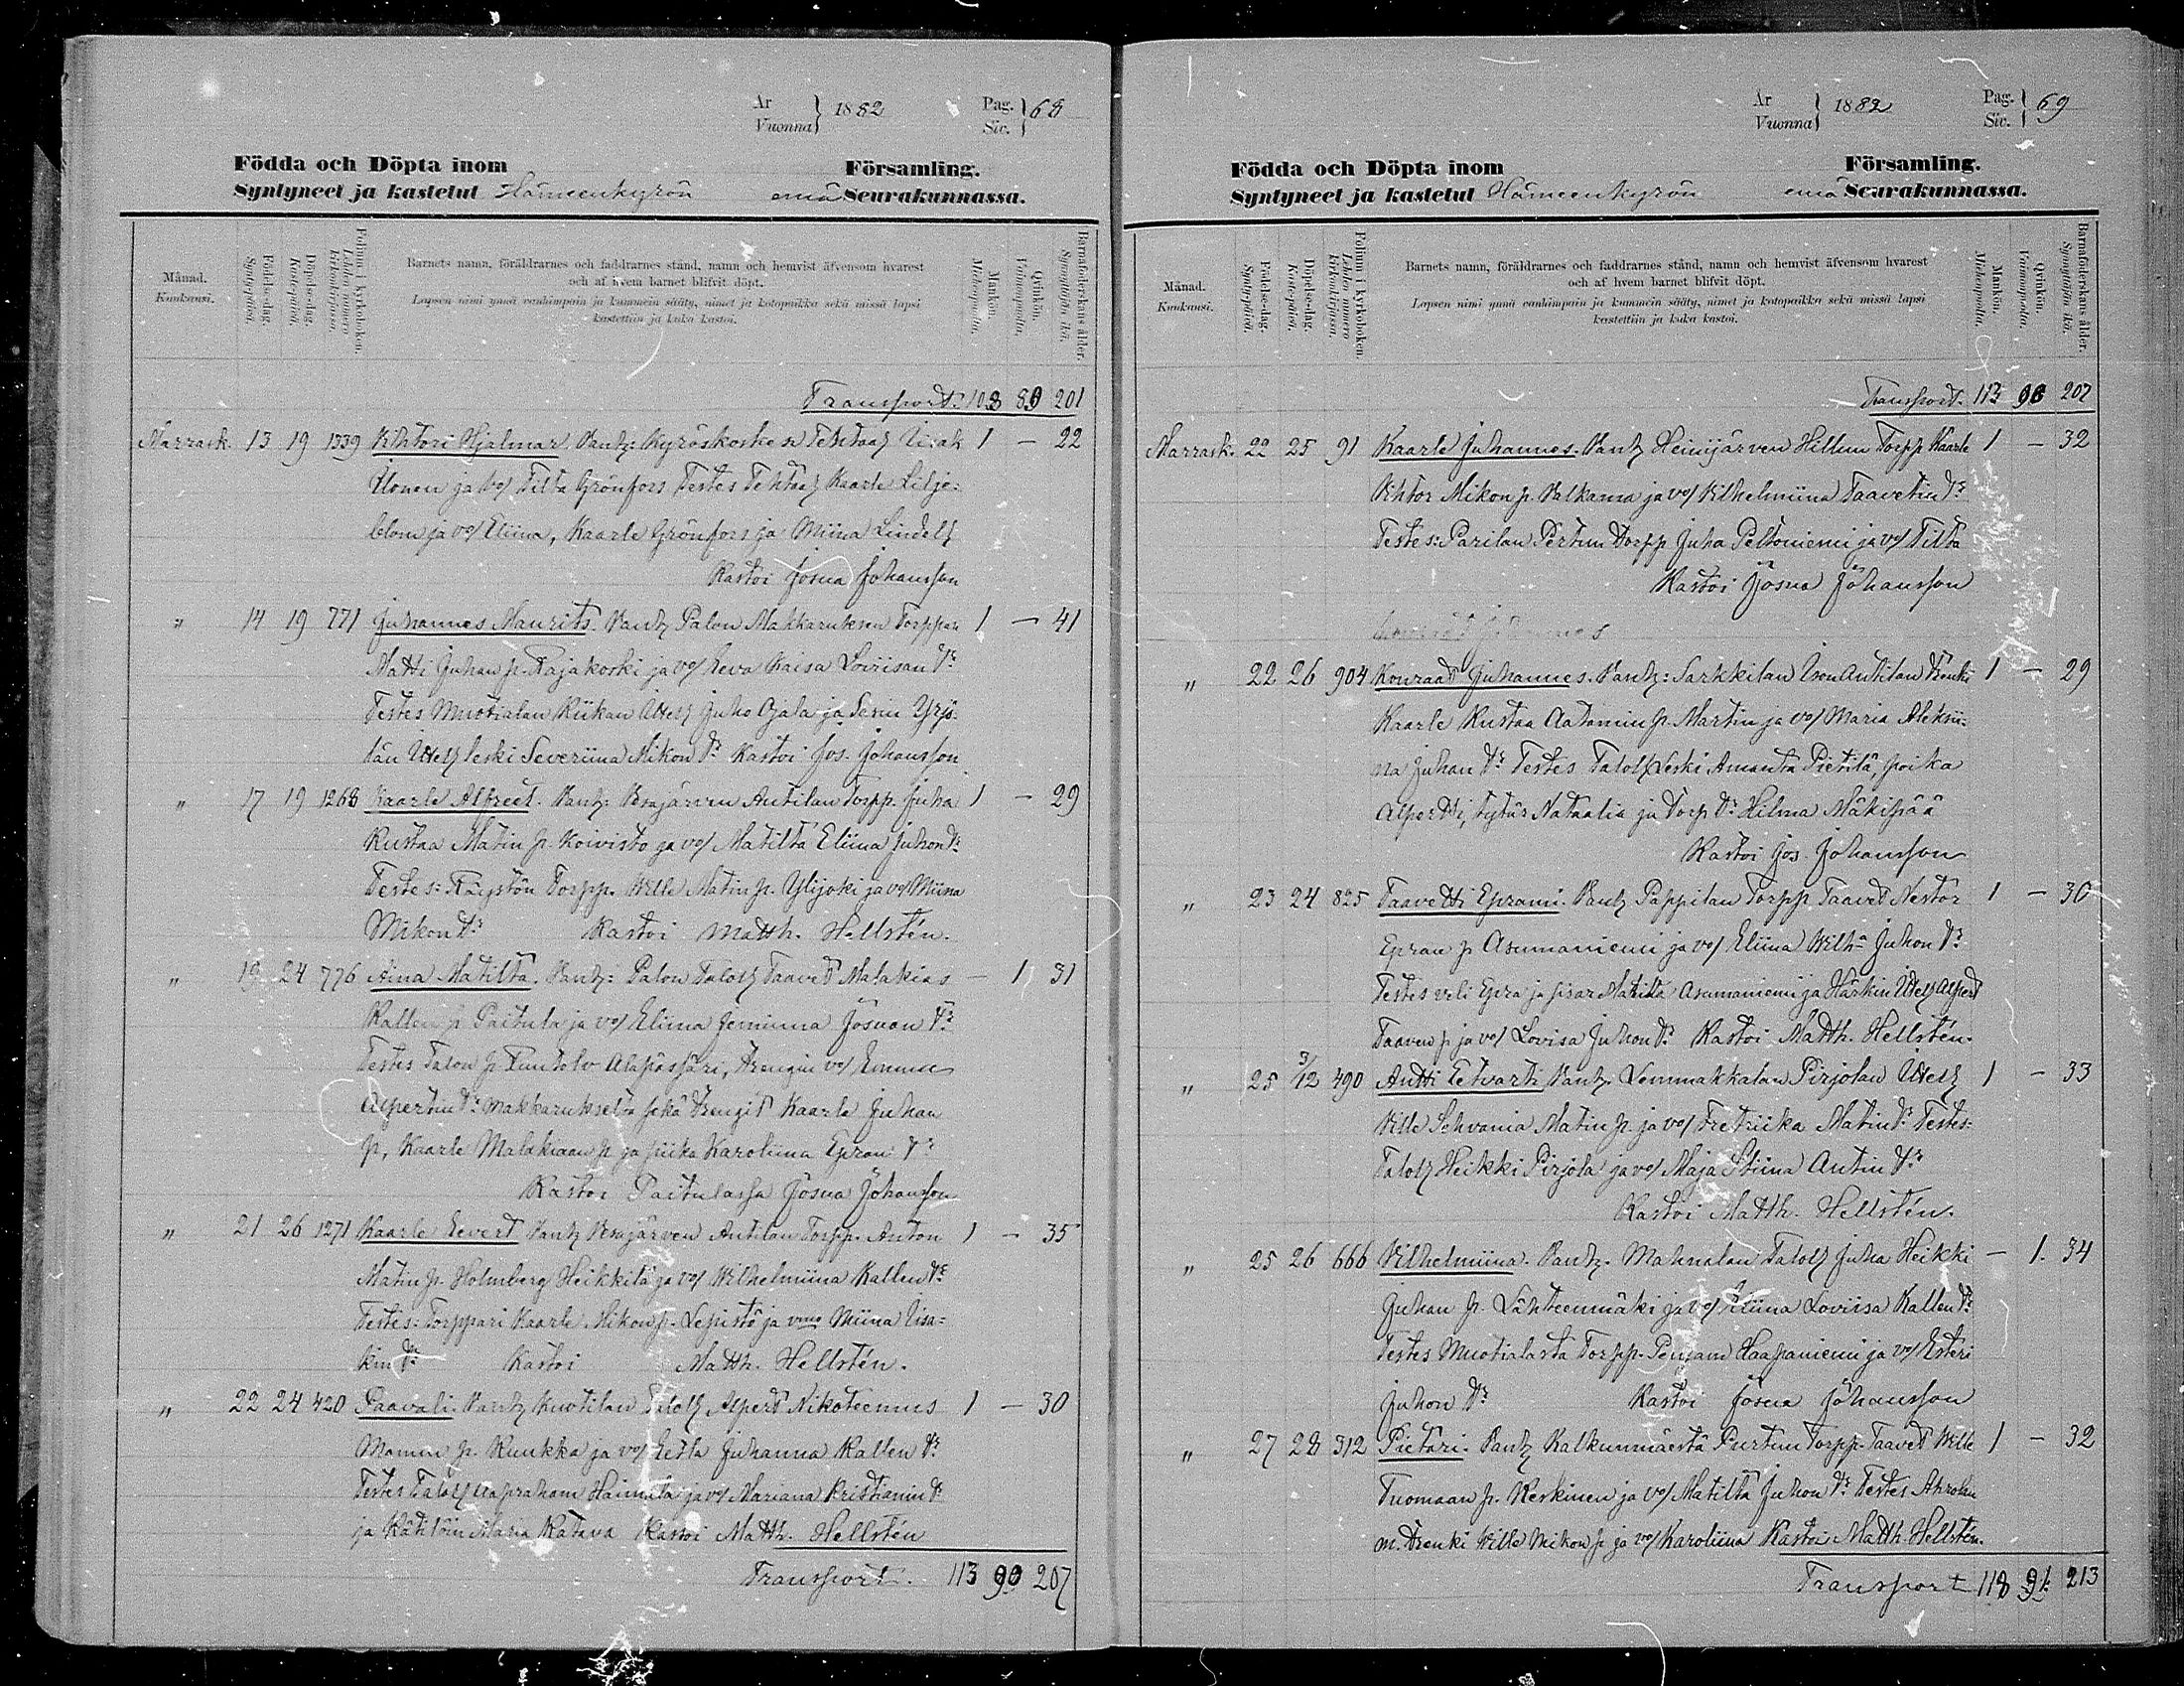 År
Vuonna } 1882 Pag.
Siv. } 68
Födda och Döpta inom Församling.
Syntyneet ja kastetut Hämeenkyrön emä Seurakunnassa.
Månad.
Kuukausi.
Födelse-dag.
Syntypäivä.
Döpelse-dag.
Kastepäivä.
Folium i kyrkoboken.
Lehden numero kirkonkirjassa
Barnets namn, föräldrarnes och faddrarnes stånd, namn och hemvist äfvensom hvarest
och af hvem barnet blifvit döpt.
Lapsen nimi ynnä vanhimpain ja kummein sääty, nimet ja kotopaikka sekä missä lapsi
kastettiin ja kuka kastoi.
Mankön.
Miehenpuolta.
Qvinkön.
Vaimonpuolta.
Barnaföderskans ålder.
Synnyttäjän ikä.
Transport: 108 89 201
Marrask. 13 19 1339 Vihtori Hjalmar. Vanh: Kyröskosken Tehtaal Iisak 1 — 22
Ilonen ja vo/ Tilta Grönfors Testes Tehtaal Kaarle Lilje-
blom ja vo/ Eliina, Kaarle Grönfors ja Miina Lindell
Kastoi Josua Johansson
" 14 19 771 Juhannes Maurits. Vanh Palon Makkaruksen Torppari 1 — 41
Matti Juhan p. Rajakoski ja vo/ Eeva Kaisa Loviisan tr
Testes Muotialan Kiikan Itsell Juho Ojala ja Serin Yrjö-
län Itsell leski Severiina Mikon tr Kastoi Jos. Johansson
" 17 19 1268 Kaarle Alfreet. Vanh: Vesajärven Anttilan Torpp. Juha 1 — 29
Kustaa Matin p. Koivisto ja vo/ Matilta Eliina Juhon tr
Testes: Räystön Torpp. Wille Matin p. Ylijoki ja vo/ Miina
Mikon tr Kastoi Matth. Hellstén.
" 19 24 776 Aina Matilta. Vanh: Palon Taloll Taavet Malakias — 1 31
Kallen p Paitula ja vo/ Eliina Jemiina Josuan tr
Testes Talon p Runtolv Alapässäri, Trengin vo/ Emma
Alpertin tr Makkarukselta sekä trengit Kaarle Juhan
p, Kaarle Malakiaan p ja piika Karoliina Epran tr
Kastoi Paitulassa Josua Johansson
" 21 26 1271 Kaarle Eevert Vanh Vesajärven Antilan Torpp. Anton 1 — 35
Matin p. Holmberg Heikkilä ja vo/ Wilhelmiina Kallen tr
Testes: Torppari Kaarle Mikon p. Lepistö ja vmo Miina Iisa-
kin tr Kastoi Matth. Hellstén.
" 22 24 420 Paavali. Vanh Kuotilan Taloll Alpert Nikoteemus 1 — 30
Mamun p. Kuukka ja vo/ Eetla Juhanna Kallen tr
Testes Taloll Aapraham Haimala ja vo/ Mariana Kristianin tr
ja Kätilöin Maria Katava Kastoi Matth. Hellstén
Transport. 113 90 207
År
Vuonna } 1882 Pag.
Siv. } 69
Födda och Döpta inom Församling.
Syntyneet ja kastetut Hämeenkyrön emä Seurakunnassa.
Månad.
Kuukausi.
Födelse-dag.
Syntypäivä.
Döpelse-dag.
Kastepäivä.
Folium i kyrkoboken.
Lehden numero kirkonkirjassa.
Barnets namn, föräldrarnes och faddrarnes stånd, namn och hemvist äfvensom hvarest
och af hvem barnet blifvit döpt.
Lapsen nimi ynnä vanhimpain ja kummein sääty, nimet ja kotopaikka sekä missä lapsi
kastettiin ja kuka kastoi.
Mankön.
Miehenpuolta.
Qvinkön.
Vaimonpuolta.
Barnaföderskans ålder.
Synnyttäjän ikä.
Transport. 113 90 207
Marrask. 22 25 91 Kaarle Juhannes. Vanh Heinijärven Hillun Torpp Kaarle 1 — 32
Vihtor Mikon p. Valkama ja vo/ Vilhelmiina Taavetin tr
Testes: Parilan Pertun Torpp Juha Peltoniemi ja vo/ Tilta
Kastoi Josua Johansson
" 22 26 904 Konraat Juhannes. Vanh: Sarkkilan Ison Antilan Trenki 1 — 29
Kaarle Kustaa Aatamin p. Martin ja vo/ Maria Aleksii-
na Juhan tr Testes Taloll Leski Amanta Pietilä, poika
Alpertti, tytär Nataalia ja Torp tr Hilma Mäkipää
Kastoi Jos. Johansson
" 23 24 825 Taavetti Eprami. Vanh Pappilan Torpp. Taavet Nestor 1 — 30
Epran p Asumaniemi ja vo/ Eliina Wilha Juhon tr
Testes veli Epra ja sisar Matilta Asumaniemi ja Härkin Itsell Alpert
Taaven p ja vo/ Lovisa Juhon tr Kastoi Matth. Hellstén.
" 25 3/12 490 Antti Eetvarti Vanh: Lemmakkalan Pirjolan Itsell 1 — 33
Ville Sehvania Matin p. ja vo/ Fretriika Matin tr Testes:
Taloll Heikki Pirjola ja vo/ Maja Stiina Antin tr
Kastoi Matth. Hellstén.
" 25 26 666 Vilhelmiina. Vanh. Mahnalan Taloll Juha Heikki — 1. 34
Juhan p. Lähteenmäki ja vo/ Eliina Loviisa Kallen tr
Testes Muotialasta Torpp. Penjam Haapaniemi ja vo/ Esteri
Juhon tr Kastoi Josua Johansson
" 27 28 312 Pietari. Vanh Kalkunmäestä Purtun Torpp. Taavet Wille 1 — 32
Tuomaan p. Keskinen ja vo/ Matilta Juhon tr Testes Ahrolan
m. Trenki Ville Mikon p ja vo/ Karoliina Kastoi Matth. Hellstén.
Transport 118 91 213